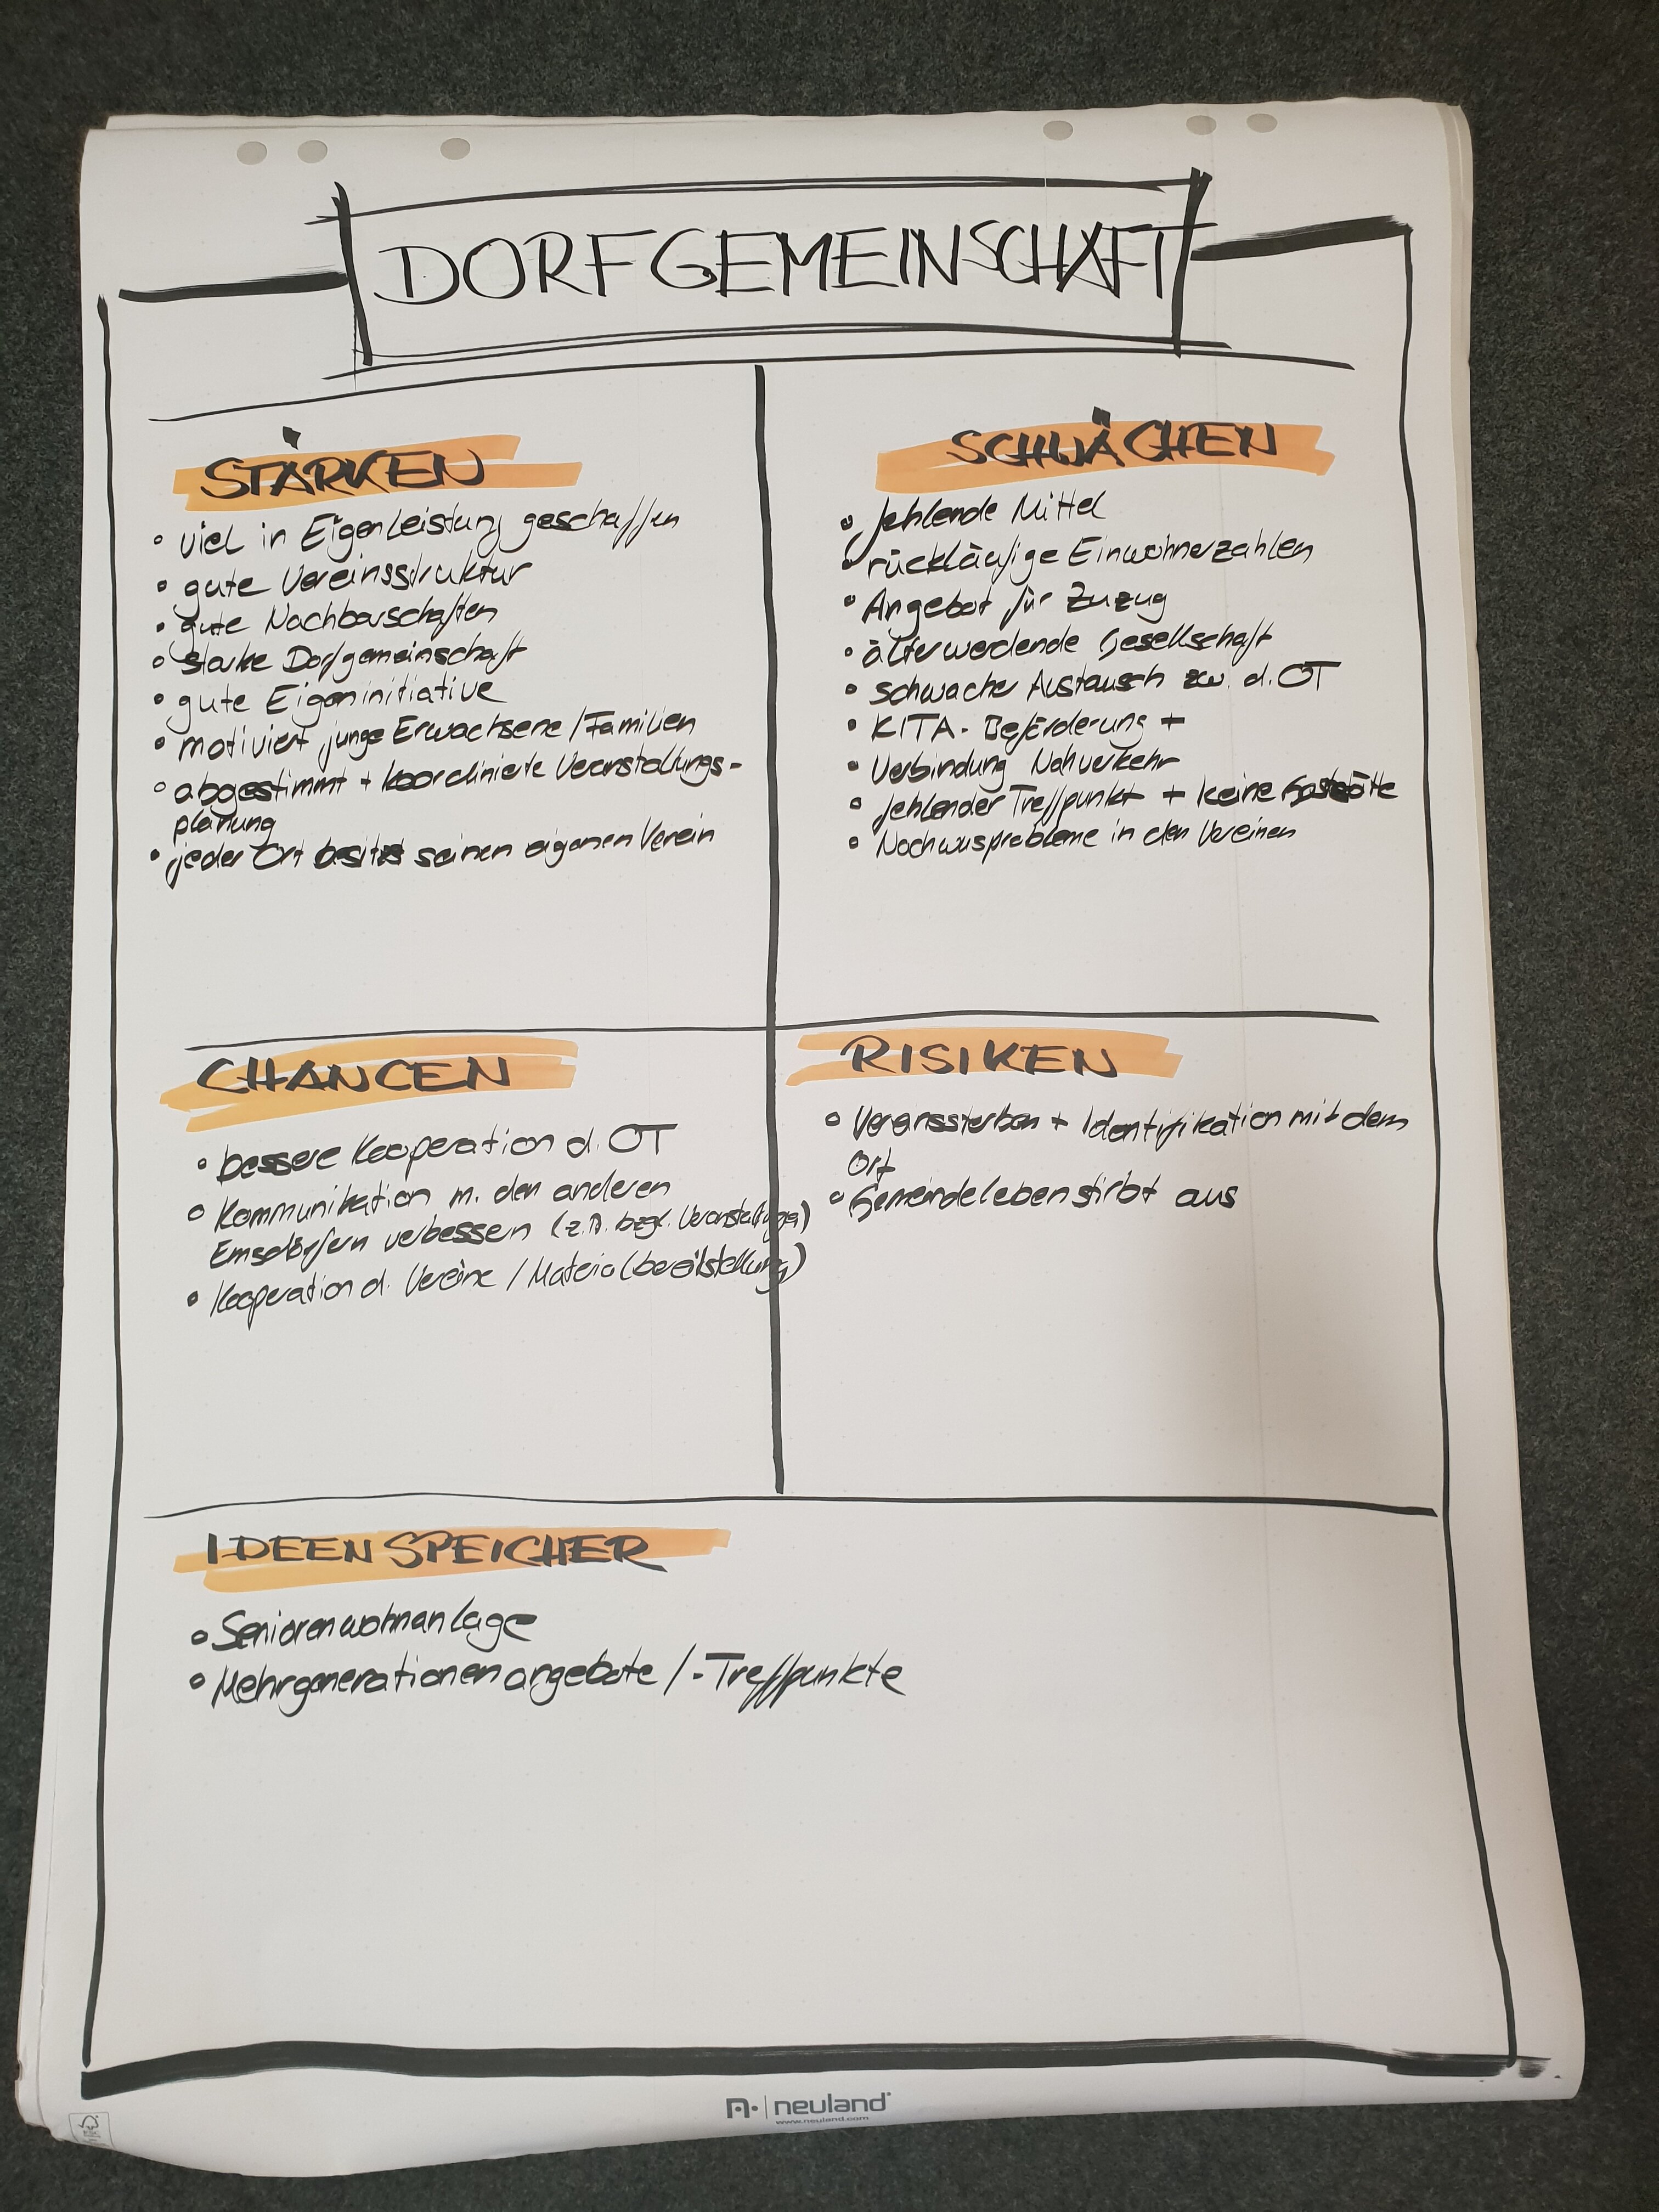 DORFGEMEINSCHAFT
STÄRKEN
• viel in Eigenleistung geschaffen
• gute Vereinsstruktur
• gute Nachbarschaften
• starke Dorfgemeinschaft
• gute Eigeninitiative
• motiviert junge Erwachsene / Familien
• abgestimmt + koordinierte Veranstaltungs-
planung
• jeder Ort besitzt seinen eigenen Verein
SCHWÄCHEN
• fehlende Mittel
• rückläufige Einwohnerzahlen
• Angebot für Zuzug
• älterwerdende Gesellschaft
• schwacher Austausch zw. d. OT
• KITA-Beförderung +
• Verbindung Nahverkehr
• fehlender Treffpunkt + keine
• Nachwusprobleme in den Vereinen
CHANCEN
• bessere Kooperation d. OT
• Kommunikation m. den anderen
Emsdörfern verbessen (z.B. bzgl. Veranstaltungen)
• Kooperation d. Vereine / Material(bereitstellung)
RISIKEN
• Vereinssterben + Identifikation mit dem
Ort
• Gemeindeleben stirbt aus
IDEENSPEICHER
• Seniorenwohnanlage
• Mehrgenerationenangebote / -Treffpunkte
neuland
www.neuland.com